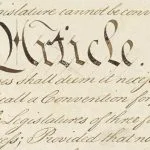 islature cannot be conv
Article.
es shall deem it nece
all a Convention for
Legislatures of three fo
ss; Provided that no